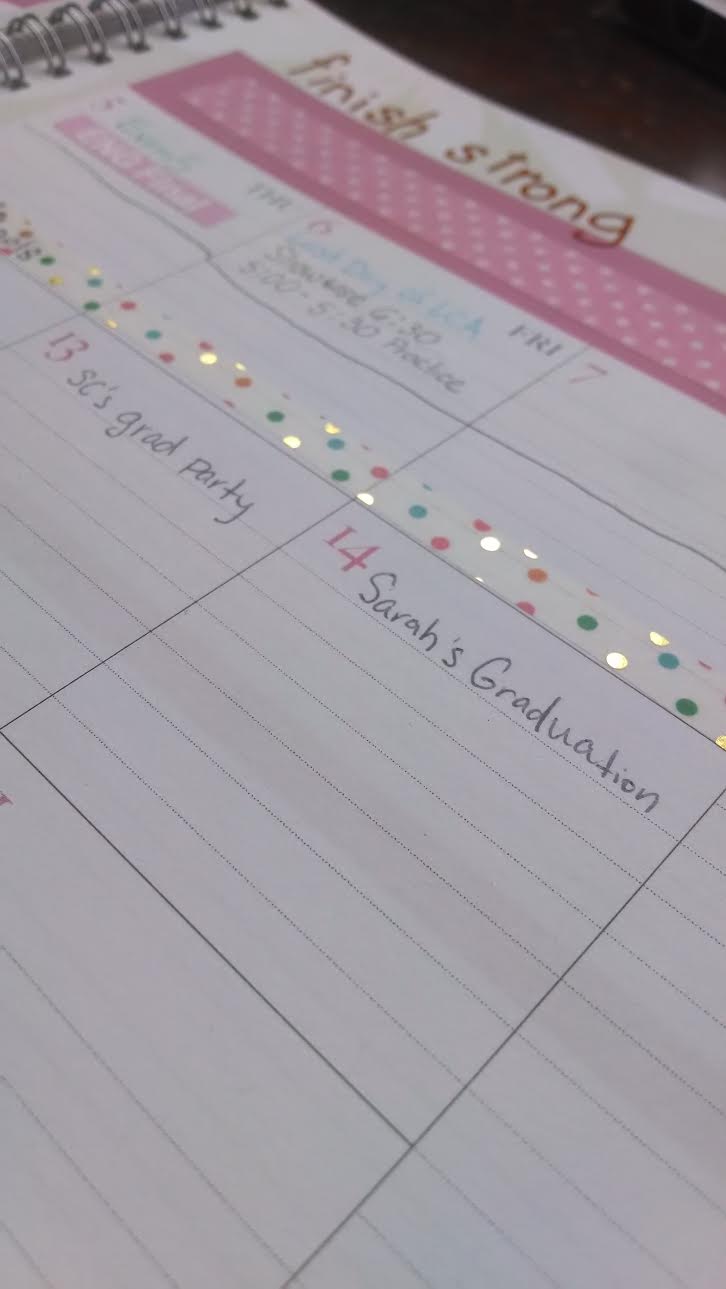 finish strong
5
Exams
ENG Final
THU
6
Last Day of LCA
Showcase 6:30
5:00-5:30 Practice
FRI
7
13
SC's grad party
14
Sarah's Graduation